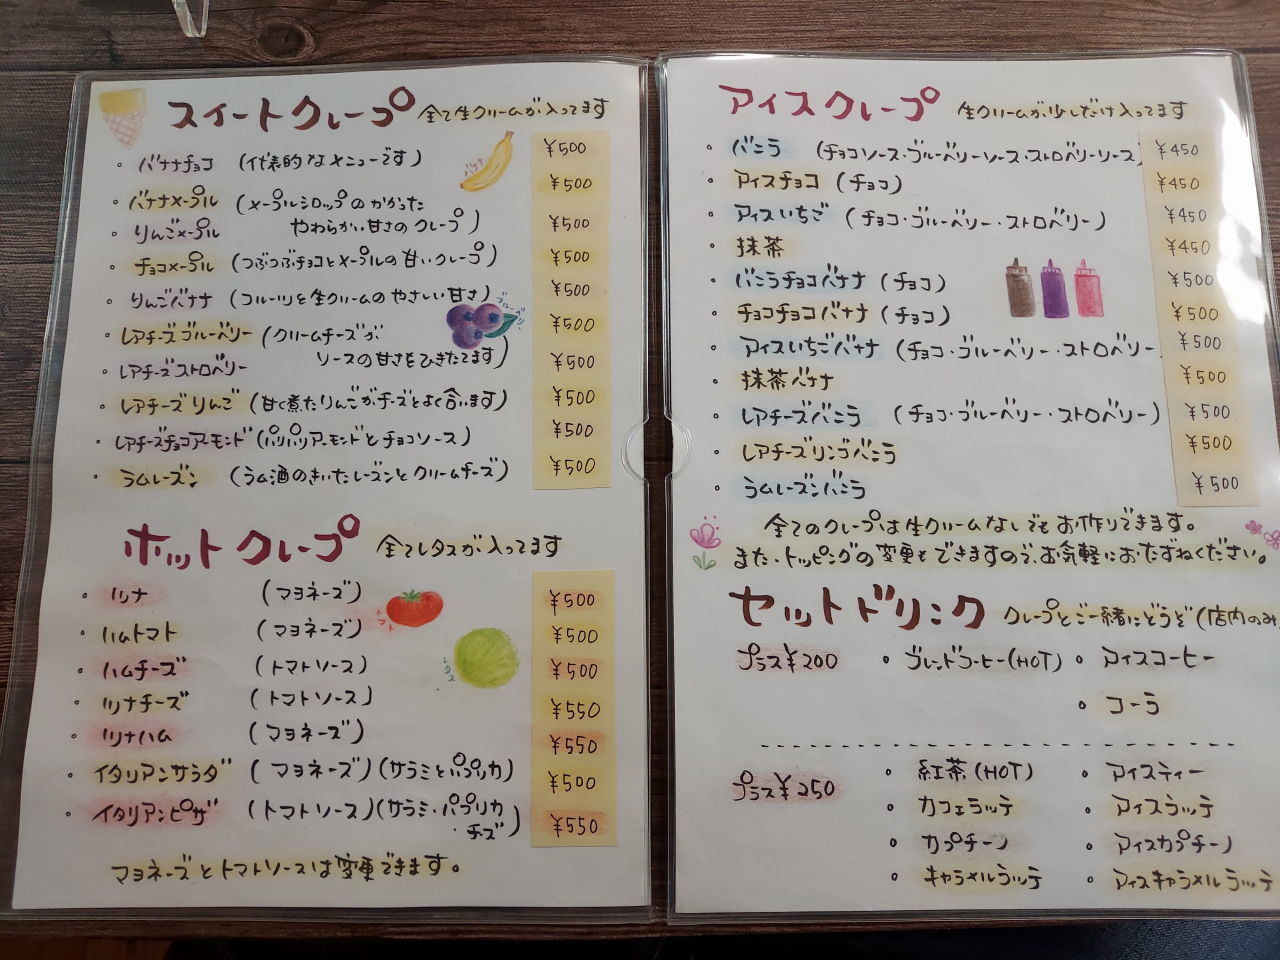 スイートクレープ 全て生クリームが入ってます
・バナナチョコ (代表的なメニューです) ¥500
・バナナメープル (メープルシロップのかかった ¥500
・りんごメープル やわらかい甘さのクレープ) ¥500
・チョコメープル (つぶつぶチョコとメープルの甘いクレープ) ¥500
・りんごバナナ (フルーツと生クリームのやさしい甘さ) ¥500
・レアチーズブルーベリー (クリームチーズが ¥500
・レアチーズストロベリー ソースの甘さをひきたてます) ¥500
・レアチーズりんご (甘く煮たりんごがチーズとよく合います) ¥500
・レアチーズチョコアーモンド (パリパリアーモンドとチョコソース) ¥500
・ラムレーズン (ラム酒のきいたレーズンとクリームチーズ) ¥500
バナナ
ブルーベリー
ホットクレープ 全てレタスが入ってます
・ツナ (マヨネーズ) ¥500
・ハムトマト (マヨネーズ) ¥500
・ハムチーズ (トマトソース) ¥500
・ツナチーズ (トマトソース) ¥550
・ツナハム (マヨネーズ) ¥550
・イタリアンサラダ (マヨネーズ)(サラミとパプリカ) ¥500
・イタリアンピザ (トマトソース)(サラミ・パプリカ ¥550
・チーズ)
トマト
レタス
マヨネーズとトマトソースは変更できます。
アイスクレープ 生クリームが少しだけ入ってます
・バニラ (チョコソース・ブルーベリーソース・ストロベリーソース) ¥450
・アイスチョコ (チョコ) ¥450
・アイスいちご (チョコ・ブルーベリー・ストロベリー) ¥450
・抹茶 ¥450
・バニラチョコバナナ (チョコ) ¥500
・チョコチョコバナナ (チョコ) ¥500
・アイスいちごバナナ (チョコ・ブルーベリー・ストロベリー) ¥500
・抹茶バナナ ¥500
・レアチーズバニラ (チョコ・ブルーベリー・ストロベリー) ¥500
・レアチーズリンゴバニラ ¥500
・ラムレーズンバニラ ¥500
全てのクレープは生クリームなしでもお作りできます。
また、トッピングの変更もできますので、お気軽におたずねください。
セットドリンク クレープとご一緒にどうぞ(店内のみ
プラス¥200 ・ブレンドコーヒー(HOT) ・アイスコーヒー
・コーラ
プラス¥250 ・紅茶(HOT) ・アイスティー
・カフェラッテ ・アイスラッテ
・カプチーノ ・アイスカプチーノ
・キャラメルラッテ ・アイスキャラメルラッテ